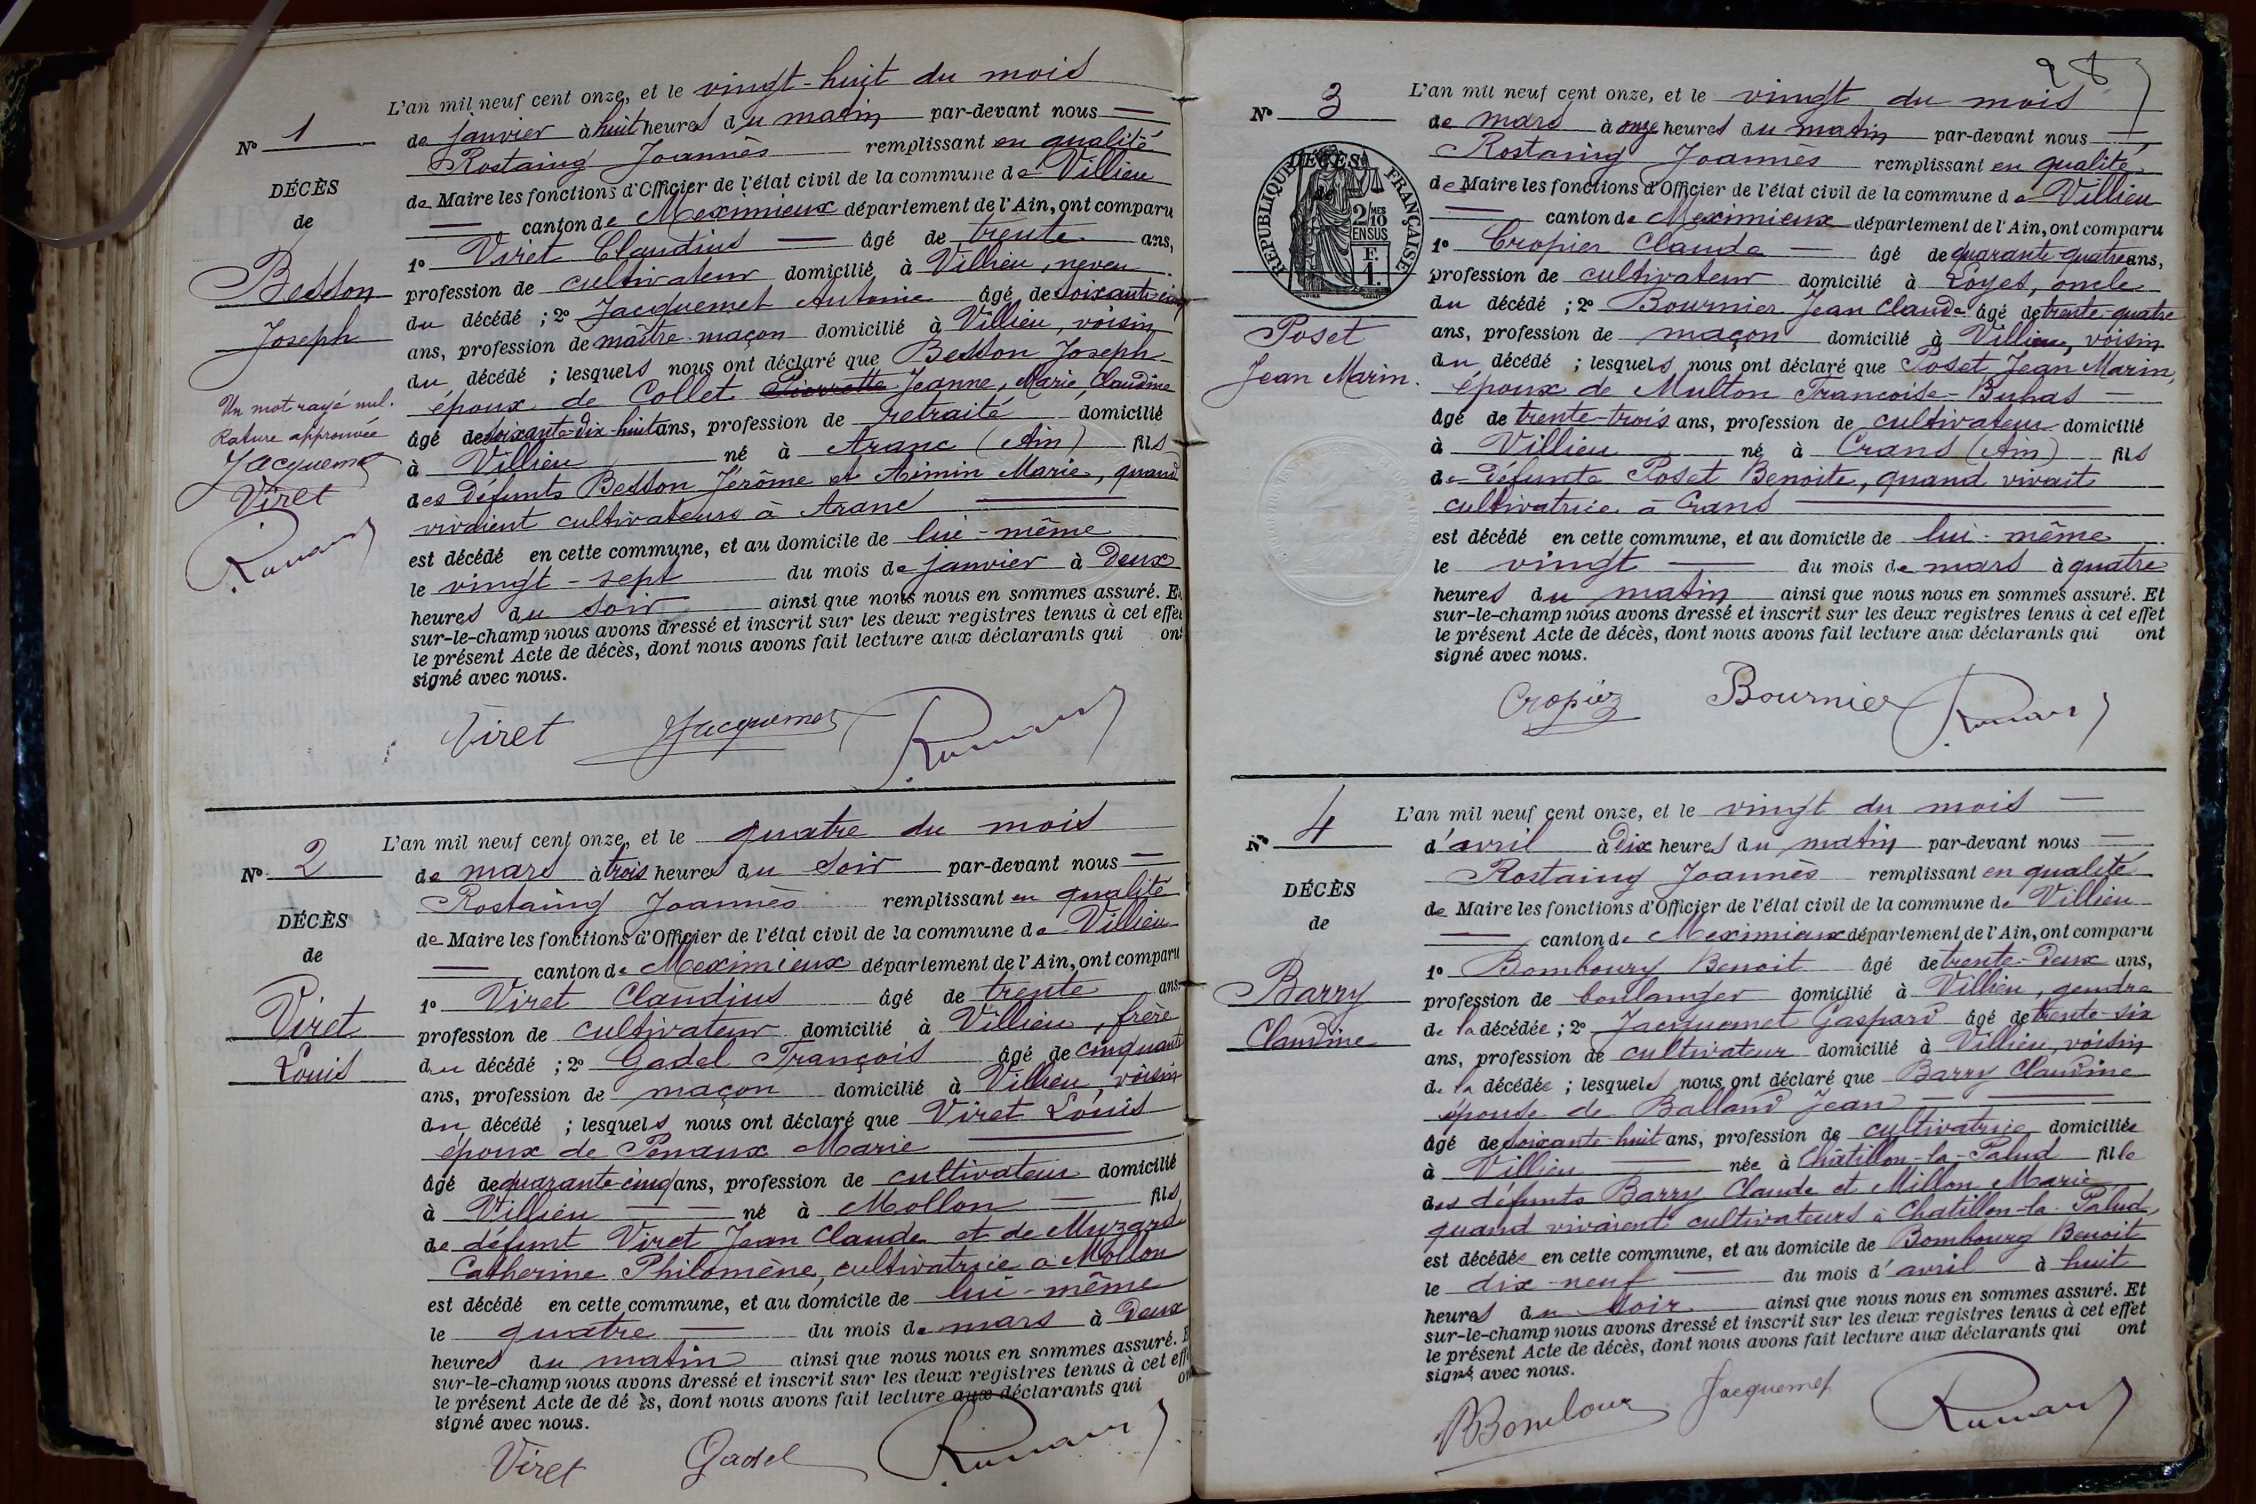 L'an mil neuf cent onze, et le vingt-huit du mois
N° 1
de janvier à huit heures du matin par-devant nous
Rostaing Joannès remplissant en qualité
DÉCÈS
de Maire les fonctions d'Officier de l'état civil de la commune de Villieu
de
canton de Meximieux département de l'Ain, ont comparu
1° Viret Claudius âgé de trente ans,
Besson
profession de cultivateur domicilié à Villieu, neveu
Joseph
du décédé ; 2° Jacquemet Antoine âgé de soixante-cinq
ans, profession de maître maçon domicilié à Villieu, voisin
du décédé ; lesquels nous ont déclaré que Besson Joseph
Un mot rayé nul.
époux de Collet Pierrette Jeanne, Marie, Claudine
Rature approuvée
âgé de soixante-dix-huit ans, profession de retraité domicilié
Jacquemet
à Villieu né à Aranc (Ain) fils
Viret
des défunts Besson Jérôme et Aimin Marie, quand
vivaient cultivateurs à Aranc
est décédé en cette commune, et au domicile de lui-même
le vingt-sept du mois de janvier à deux
heures du soir ainsi que nous nous en sommes assuré. Et
sur-le-champ nous avons dressé et inscrit sur les deux registres tenus à cet effet
le présent Acte de décès, dont nous avons fait lecture aux déclarants qui ont
signé avec nous.
Viret Jacquemet
L'an mil neuf cent onze, et le quatre du mois
N° 2
de mars à trois heures du soir par-devant nous
Rostaing Joannès remplissant en qualité
DÉCÈS
de Maire les fonctions d'Officier de l'état civil de la commune de Villieu
de
canton de Meximieux département de l'Ain, ont comparu
1° Viret Claudius âgé de trente ans,
Viret
profession de cultivateur domicilié à Villieu, frère
Louis
du décédé ; 2° Gadel François âgé de cinquante
ans, profession de maçon domicilié à Villieu, voisin
du décédé ; lesquels nous ont déclaré que Viret Louis
époux de Penaux Marie
âgé de quarante-cinq ans, profession de cultivateur domicilié
à Villieu né à Mollon fils
de défunt Viret Jean Claude et de Muzard
Catherine Philomène, cultivatrice à Mollon
est décédé en cette commune, et au domicile de lui-même
le quatre du mois de mars à deux
heures du matin ainsi que nous nous en sommes assuré. E
sur-le-champ nous avons dressé et inscrit sur les deux registres tenus à cet effe
le présent Acte de dé ès, dont nous avons fait lecture aux déclarants qui on
signé avec nous.
Viret Gadel
28
L'an mil neuf cent onze, et le vingt du mois
N° 3
de mars à onze heures du matin par-devant nous
Rostaing Joannès remplissant en qualité
de Maire les fonctions d'Officier de l'état civil de la commune de Villieu
DÉCÈS
de
RÉPUBLIQUE FRANÇAISE
2/10 MES
EN SUS
F.
1.
canton de Meximieux département de l'Ain, ont comparu
1° Cropier Claude âgé de quarante-quatre ans,
profession de cultivateur domicilié à Loyes, oncle
du décédé ; 2° Bournier Jean Claude âgé de trente-quatre
Poset
ans, profession de maçon domicilié à Villieu, voisin
Jean Marin.
du décédé ; lesquels nous ont déclaré que Poset Jean Marin,
époux de Multon Françoise-Buhas
âgé de trente-trois ans, profession de cultivateur domicilié
à Villieu né à Crans (Ain) fils
de défunte Poset Benoite, quand vivait
cultivatrice à Crans
est décédé en cette commune, et au domicile de lui-même
le vingt du mois de mars à quatre
heures du matin ainsi que nous nous en sommes assuré. Et
sur-le-champ nous avons dressé et inscrit sur les deux registres tenus à cet effet
le présent Acte de décès, dont nous avons fail lecture aux déclarants qui ont
signé avec nous.
Cropier Bournier
L'an mil neuf cent onze, et le vingt du mois
N° 4
d'avril à dix heures du matin par-devant nous
Rostaing Joannès remplissant en qualité
DÉCÈS
de Maire les fonctions d'Officier de l'état civil de la commune de Villieu
de
canton de Meximieux département de l'Ain, ont comparu
1° Bomboury Benoit âgé de trente-deux ans,
Barry
profession de boulanger domicilié à Villieu, gendre
Claudine
de la décédée ; 2° Jacquemet Gaspard âgé de trente-six
ans, profession de cultivateur domicilié à Villieu, voisin
de la décédée ; lesquels nous ont déclaré que Barry Claudine
épouse de Balland Jean
âgé de soixante-huit ans, profession de cultivatrice domiciliée
à Villieu née à Châtillon-la-Palud fille
des défunts Barry Claude et Millon Marie
quand vivaient cultivateurs à Chatillon-la-Palud,
est décédée en cette commune, et au domicile de Bomboury Benoit
le dix-neuf du mois d'avril à huit
heures du soir ainsi que nous nous en sommes assuré. Et
sur-le-champ nous avons dressé et inscrit sur les deux registres tenus à cet effet
le présent Acte de décès, dont nous avons fait lecture aux déclarants qui ont
signé avec nous.
Jacquemet